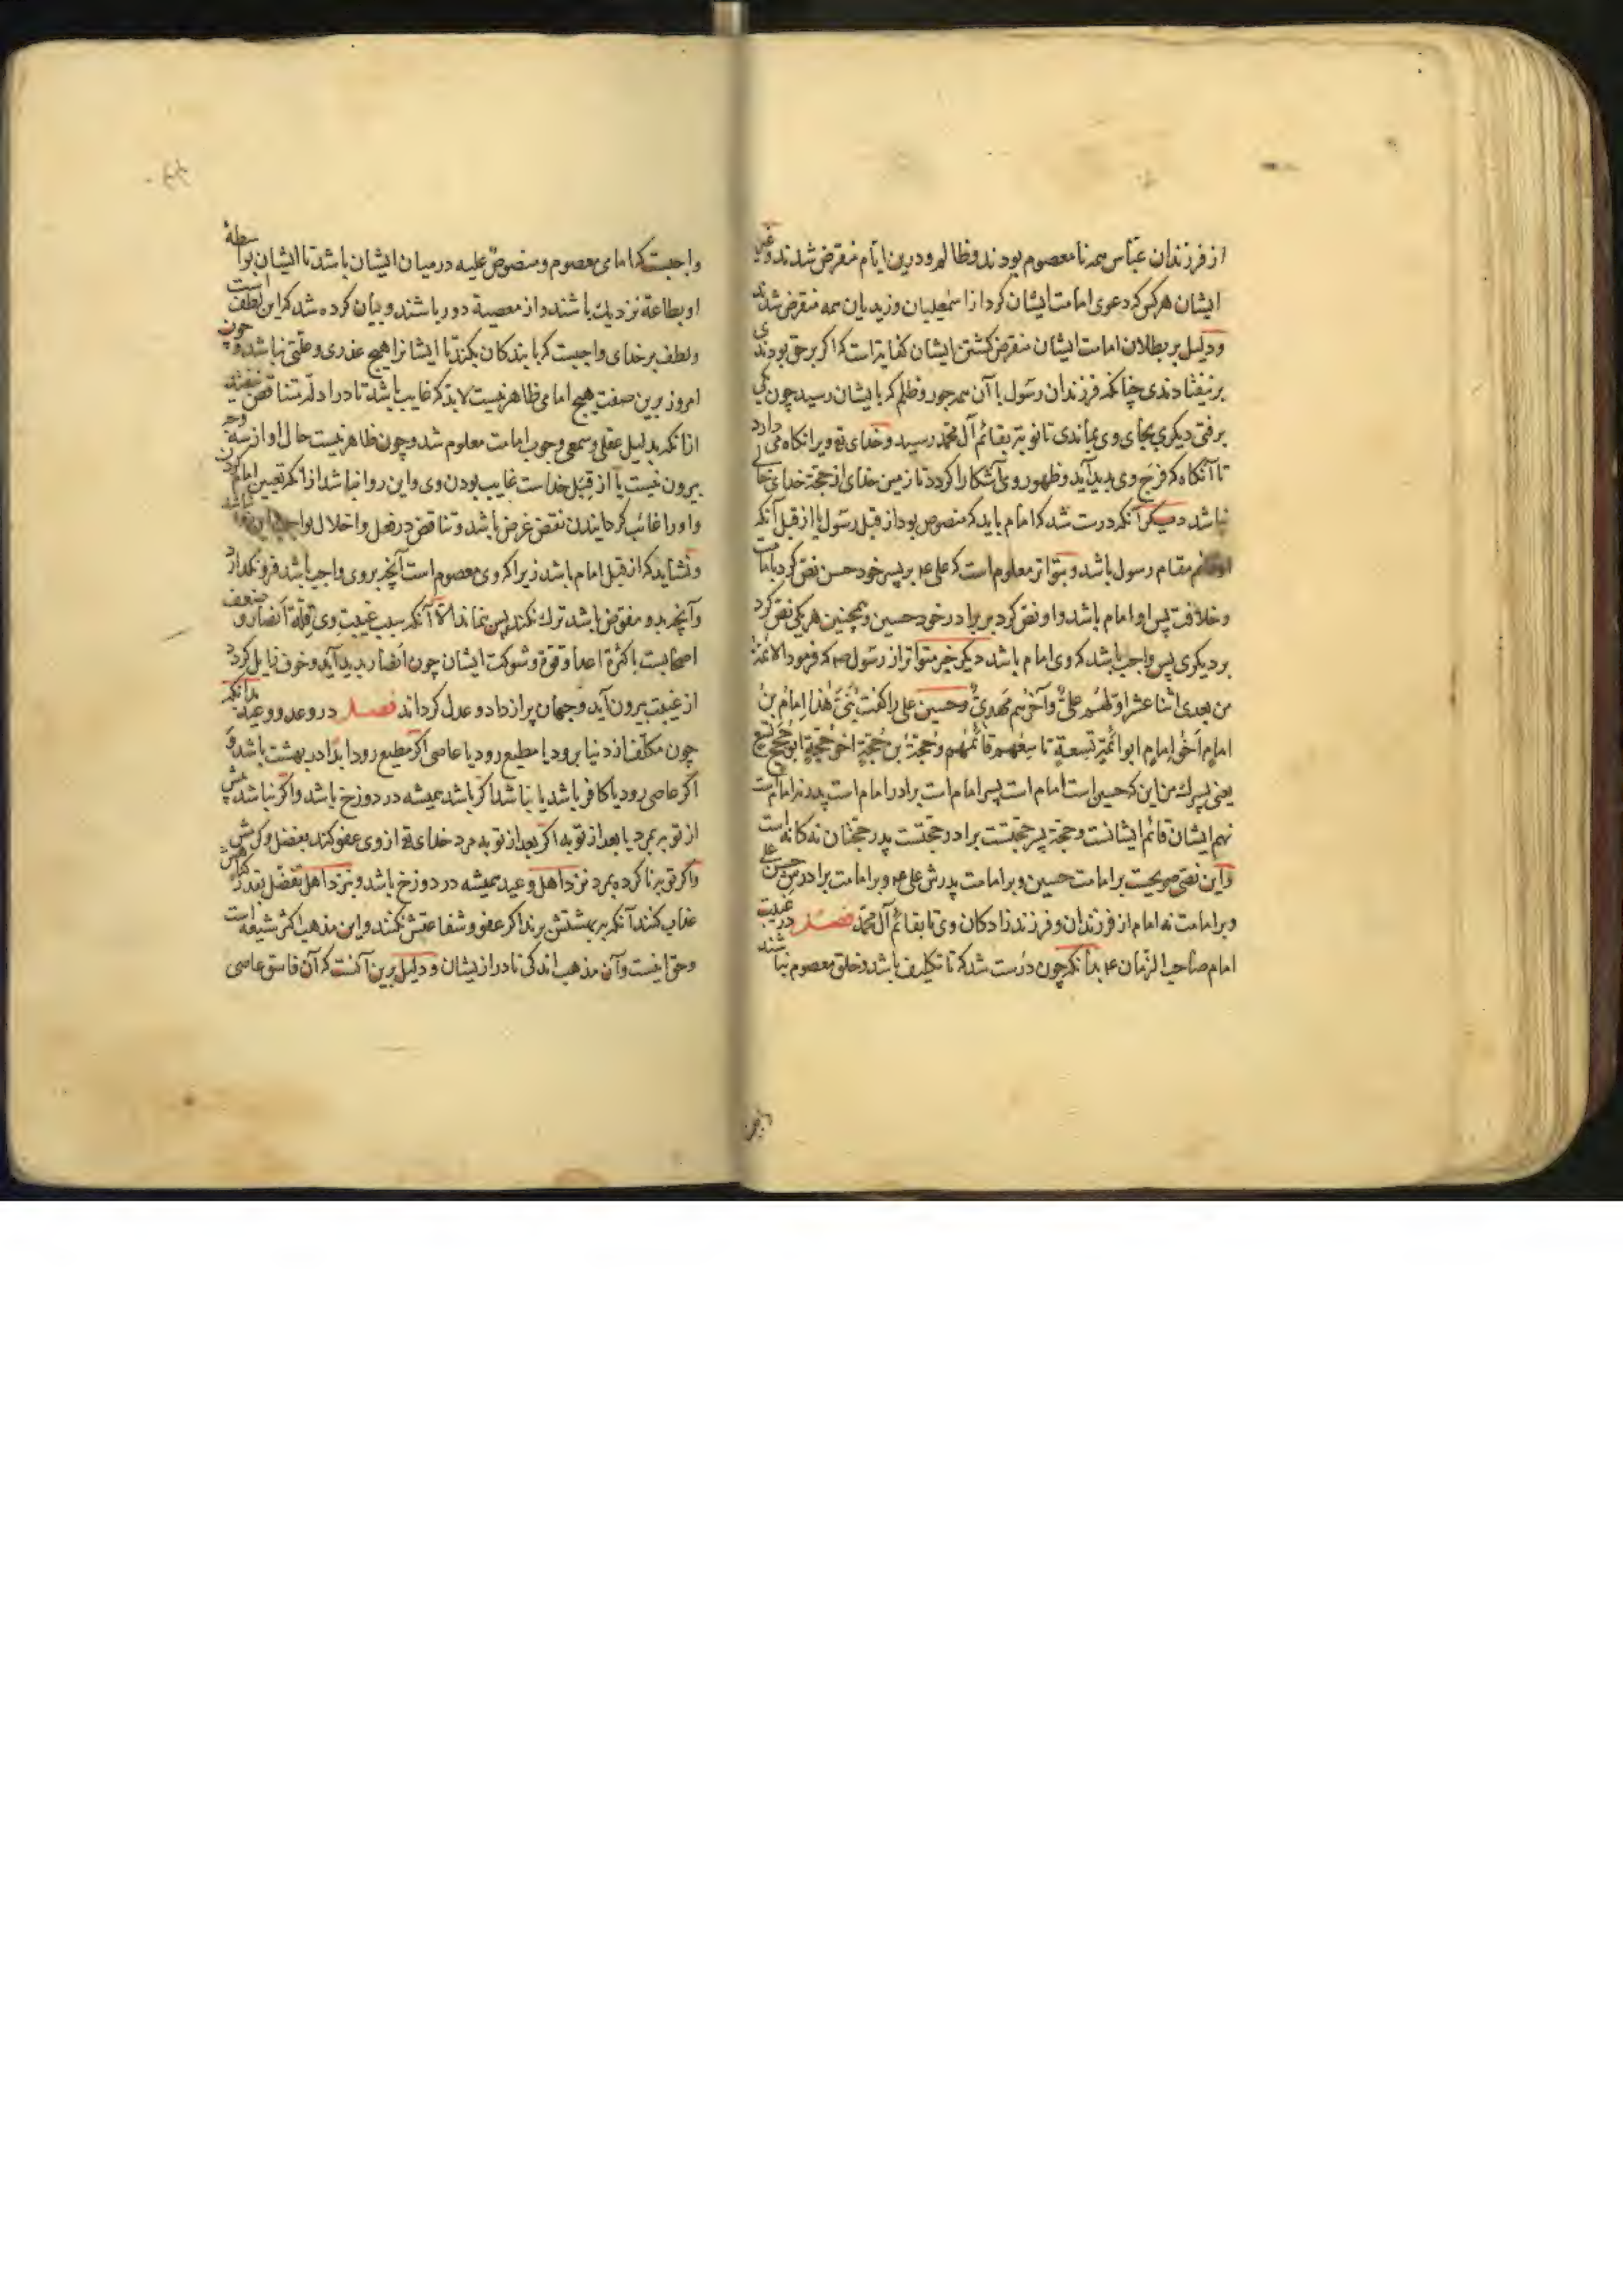 از فرزندان عباس همه نا معصوم بودند و ظالم و درین ایام منقرض شدند و غیر
ایشان هر کس که دعوی امامت ایشان کرد از اسمعیلیان و زیدیان همه منقرض شدند
و دلیل بر بطلان امامت ایشان منقرض کشتن ایشان کفایتاست که اکر بر حق بودندی
بر نیفتادندی چنانکه فرزندان رسول با آن همه جور و ظلم که بایشان رسید چون یکی
برفتی دیکری بجای وی بماندی تا نوبت بقائم آل محمد رسید و خدای تع ویرا نکاه می دارد
تا آنکاه که فرج وی پدید آید و ظهور وی آشکارا کردد تا زمین خدای از حجة خدای خالی
نباشد دیکر آنکه درست شد که امام باید که منصوص بود از قبل رسول یا از قبل آنکه
مقام رسول باشد و بتواتر معلوم است که علی ع بر پسر خود حسن نص کرد بامامت
و خلافت پس او امام باشد و او نص کرد بر برادر خود حسین و همچنین هر یکی نص کرد
بر دیکری پس واجب باشد که وی امام باشد دیکر خبر متواتر از رسول ص که فرمود الائمة
من بعدی اثنا عشر اولهم علی وآخرهم مهدی و حسین علی را کفت بنی هذا امام بن
امام اخو امام ابو ائمة تسعة تاسعهم قائمهم و حجة بن حجة اخو حجة ابو حجج تسع
یعنی پسرک من این که حسین است امام است پسر امام است برادر امام است پدر نه امام است
نهم ایشان قائم ایشانست و حجة پسر حجتست برادر حجتست پدر حجتان نه کانه است
و این نص صریحست بر امامت حسین و بر امامت پدرش علی ع و بر امامت برادرش حسن علی
و بر امامت نه امام از فرزندان و فرزند زادکان وی تا بقائم آل محمد فصل در غیبت
امام صاحب الزمان ع بدانکه چون درست شد که تا تکلیف باشد و خلق معصوم نباشند
واجبست که امامی معصوم و منصوص علیه در میان ایشان باشد تا ایشان بواسطهٔ
او بطاعة نزدیک باشند و از معصیة دور باشند و بیان کرده شد که این لطف است
و لطف بر خدای واجبست که با بندکان بکند تا ایشانرا هیچ عذری و علتی نباشد و چون
امروز برین صفت هیچ امامی ظاهر نیست لابد که غایب باشد تا در ادله تناقض نیفتد
از انکه بدلیل عقلی و سمعی وجوب امامت معلوم شد و چون ظاهر نیست حال او از سه وجه
بیرون نیست یا از قبل خداست غایب بودن وی و این روا نباشد از انکه تعیین امام کردن
و او را غائب کردانیدن نقض غرض باشد و تناقض در فعل و اخلال بواجب
و نشاید که از قبل امام باشد زیرا که وی معصوم است آنچه بر وی واجب باشد فرو نکذارد
و آنچه بدو مفوض باشد ترک نکند پس نماند الا آنکه سبب غیبت وی قلة انصار و ضعف
اصحابست با کثرة اعدا و قوة و شوکت ایشان چون انصار پدید آید و خوف زایل کردد
از غیبت بیرون آید و جهان پر از داد و عدل کرداند فصل در وعد و وعید بدانکه
چون مکلف از دنیا برود یا مطیع رود یا عاصی اکر مطیع رود ابدا در بهشت باشد و
اکر عاصی رود یا کافر باشد یا نباشد اکر باشد همیشه در دوزخ باشد و اکر نباشد پیش
از توبه بمرد یا بعد از توبه اکر بعد از توبه مرد خدای تع از وی عفو کند بفضل و کرمش
و اکر توبه نا کرده بمرد نزد اهل وعید همیشه در دوزخ باشد و نزد اهل تفضل بقدر کناهش
عذاب کنند آنکه ببهشتش برند اکر عفو و شفاعتش نکنند و این مذهب اکثر شیعه است
و حق اینست و آن مذهب اندکی نادر از یشان و دلیل برین آنست که آن فاسق عاصی